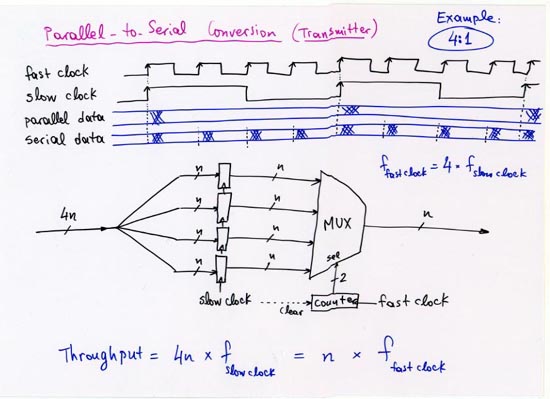 Parallel-to-Serial Conversion (Transmitter)
Example:
4:1
fast clock
slow clock
parallel data
serial data
f fast clock = 4 · f slow clock
4n
n n
n n
n n
n n
MUX
sel
n
2
slow clock
clear
counter
fast clock
Throughput = 4n × f slow clock = n × f fast clock